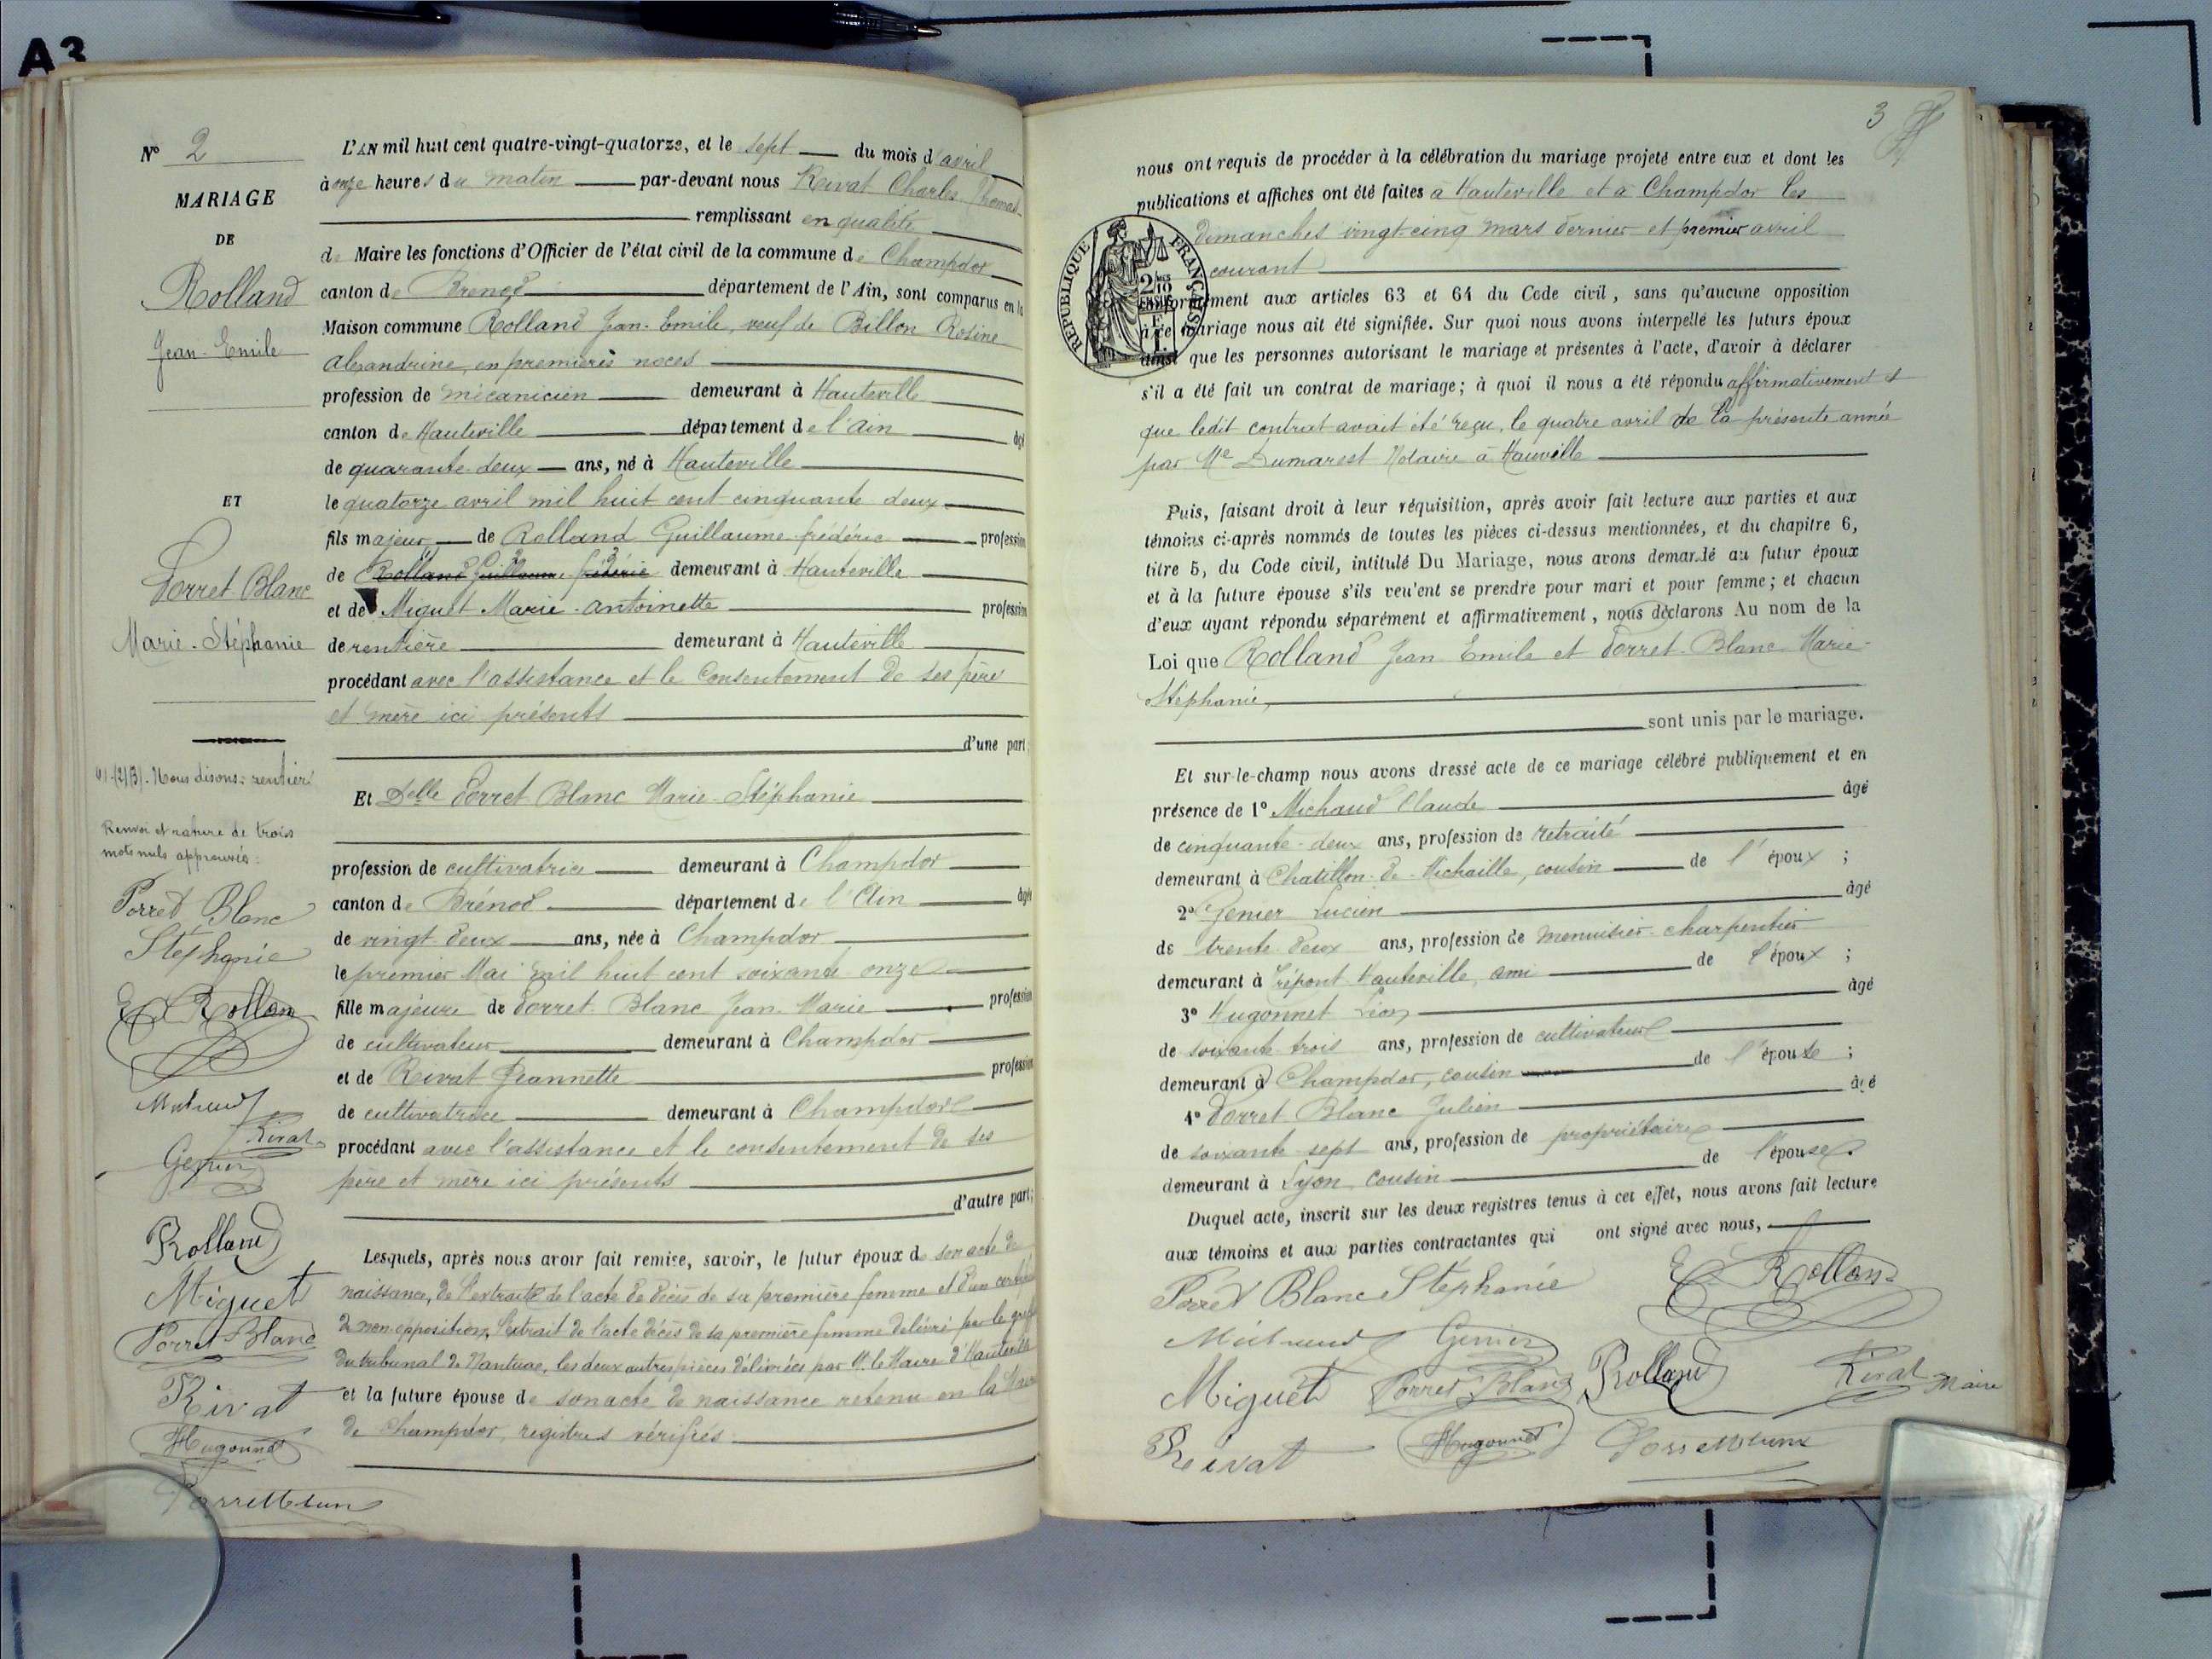 A3
N° 2
MARIAGE
DE
Rolland
Jean-Emile
ET
Porret-Blanc
Marie-Stéphanie
(1)-(2)(3)- Nous disons: rentier
Renvoi et rature de trois
mots nuls approuvés:
Porret Blanc
Stéphanie
E Rolland
Michaud
Rivat
Genier
Rolland
Miguet
Porret-Blanc
Rivat
Hugonnet
L'AN mil huit cent quatre-vingt-quatorze, et le sept du mois d'avril
à onze heures du matin par-devant nous Rivat Charles Thomas
remplissant en qualité
de Maire les fonctions d'Officier de l'état civil de la commune de Champdor
canton de Brenod département de l'Ain, sont comparus en la
Maison commune Rolland Jean-Emile, veuf de Billon Rosine
Alexandrine, en premières noces
profession de mécanicien demeurant à Hauteville
canton de Hauteville département de l'Ain âgé
de quarante-deux ans, né à Hauteville
le quatorze avril mil huit cent cinquante deux
fils majeur de Rolland Guillaume frédéric profession
de Rolland Guillaume frédéric demeurant à Hauteville
et de Miguet Marie-Antoinette profession
de rentière demeurant à Hauteville
procédant avec l'assistance et le consentement de ses père
et mère ici présents
d'une part;
Et Delle Porret Blanc Marie-Stéphanie
profession de cultivatrice demeurant à Champdor
canton de Brénod département de l'Ain âgée
de vingt deux ans, née à Champdor
le premier Mai mil huit cent soixante onze
fille majeure de Porret-Blanc Jean-Marie profession
de cultivateur demeurant à Champdor
et de Rivat Jeannette profession
de cultivatrice demeurant à Champdor
procédant avec l'assistance et le consentement de ses
père et mère ici présents
d'autre part;
Lesquels, après nous avoir fait remise, savoir, le futur époux de son acte de
naissance, de l'extrait de l'acte de décès de sa première femme et d'un certificat
de non opposition, l'extrait de l'acte décès de sa première femme délivré par le greffe
du tribunal de Nantua, les deux autres pièces délivrées par M. le Maire d'Hauteville
et la future épouse de son acte de naissance retenu en la Mairie
de Champdor, registres vérifiés
3
nous ont requis de procéder à la célébration du mariage projeté entre eux et dont les
publications et affiches ont été faites à Hauteville et à Champdor les
dimanches vingt-cinq mars dernier et premier avril
courant
RÉPUBLIQUE FRANÇAISE
conformément aux articles 63 et 64 du Code civil, sans qu'aucune opposition
à ce mariage nous ait été signifiée. Sur quoi nous avons interpellé les futurs époux
ainsi que les personnes autorisant le mariage et présentes à l'acte, d'avoir à déclarer
s'il a été fait un contrat de mariage; à quoi il nous a été répondu affirmativement et
que ledit contrat avait été reçu, le quatre avril de la présente année
par Me Dumarest Notaire à Hauville
Puis, faisant droit à leur réquisition, après avoir fait lecture aux parties et aux
témoins ci-après nommés de toutes les pièces ci-dessus mentionnées, et du chapitre 6,
titre 5, du Code civil, intitulé Du Mariage, nous avons demandé au futur époux
et à la future épouse s'ils veulent se prendre pour mari et pour femme; et chacun
d'eux ayant répondu séparément et affirmativement, nous déclarons Au nom de la
Loi que Rolland Jean Emile et Porret-Blanc Marie-
Stéphanie
sont unis par le mariage.
Et sur-le-champ nous avons dressé acte de ce mariage célébré publiquement et en
présence de 1° Michaud Claude âgé
de cinquante-deux ans, profession de retraité
demeurant à Chatillon-de-Michaille, cousin de l'époux;
2° Genier Lucien âgé
de trente-deux ans, profession de menuisier-charpentier
demeurant à Trépont Hauteville, ami de l'époux;
3° Hugonnet Léon âgé
de soixante trois ans, profession de cultivateur
demeurant à Champdor, cousin de l'épouse;
4° Porret Blanc Julien âgé
de soixante sept ans, profession de propriétaire
demeurant à Lyon, cousin de l'épouse.
Duquel acte, inscrit sur les deux registres tenus à cet effet, nous avons fait lecture
aux témoins et aux parties contractantes qui ont signé avec nous,
Porret Blanc Stéphanie E Rolland
Michaud Genier
Miguet Porret Blanc Rolland Rivat Maire
Rivat Hugonnet